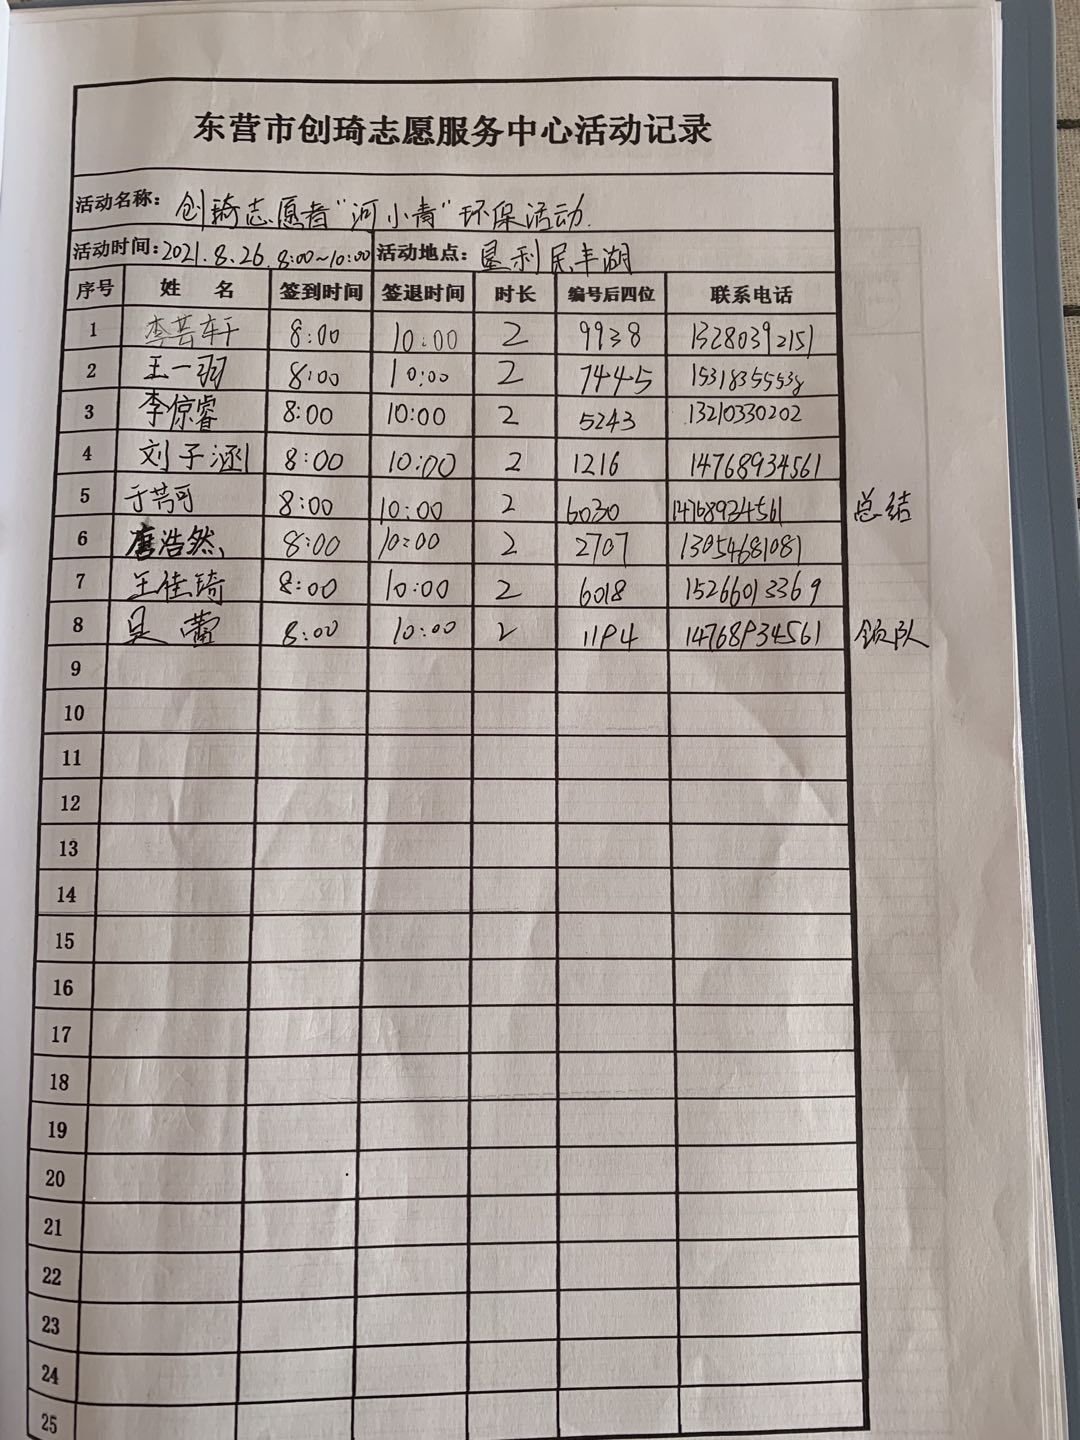 东营市创琦志愿服务中心活动记录
活动名称：创琦志愿者“河小青”环保活动.
活动时间：2021.8.26 8:00~10:00 活动地点：垦利民丰湖
序号 姓 名 签到时间 签退时间 时长 编号后四位 联系电话
1 李芸轩 8:00 10:00 2 9938 13280392151
2 王一羽 8:00 10:00 2 7445 15318355538
3 李倞睿 8:00 10:00 2 5243 13210330202
4 刘子涵 8:00 10:00 2 1216 14768934561
5 于芎可 8:00 10:00 2 6030 14768934561 总结
6 唐浩然 8:00 10:00 2 2707 13054681081
7 王佳琦 8:00 10:00 2 6018 15266013369
8 吴蕾 8:00 10:00 2 1194 14768934561 领队
9
10
11
12
13
14
15
16
17
18
19
20
21
22
23
24
25